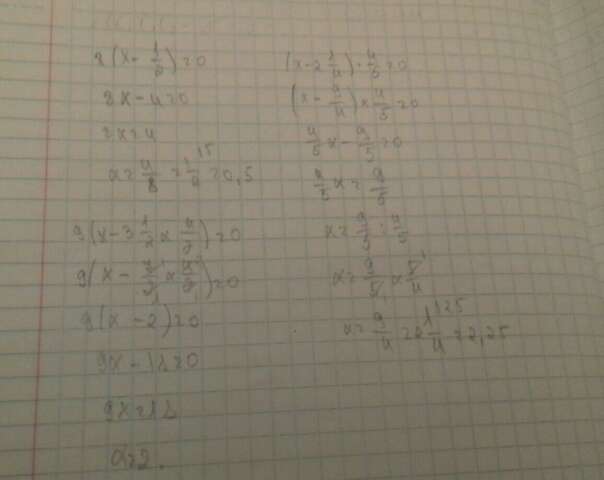 8(x - 1/2) = 0
8x - 4 = 0
8x = 4
x = 4/8 = 1/2 = 0,5
9(x - 3 1/2 × 4/7) = 0
9(x - 7/2 × 4/7) = 0
9(x - 2) = 0
9x - 18 = 0
9x = 18
x = 2.
(x - 2 1/4) · 4/5 = 0
(x - 9/4) × 4/5 = 0
4/5 x - 9/5 = 0
4/5 x = 9/5
x = 9/5 : 4/5
x = 9/5 × 5/4
x = 9/4 = 2 1/4 = 2,25